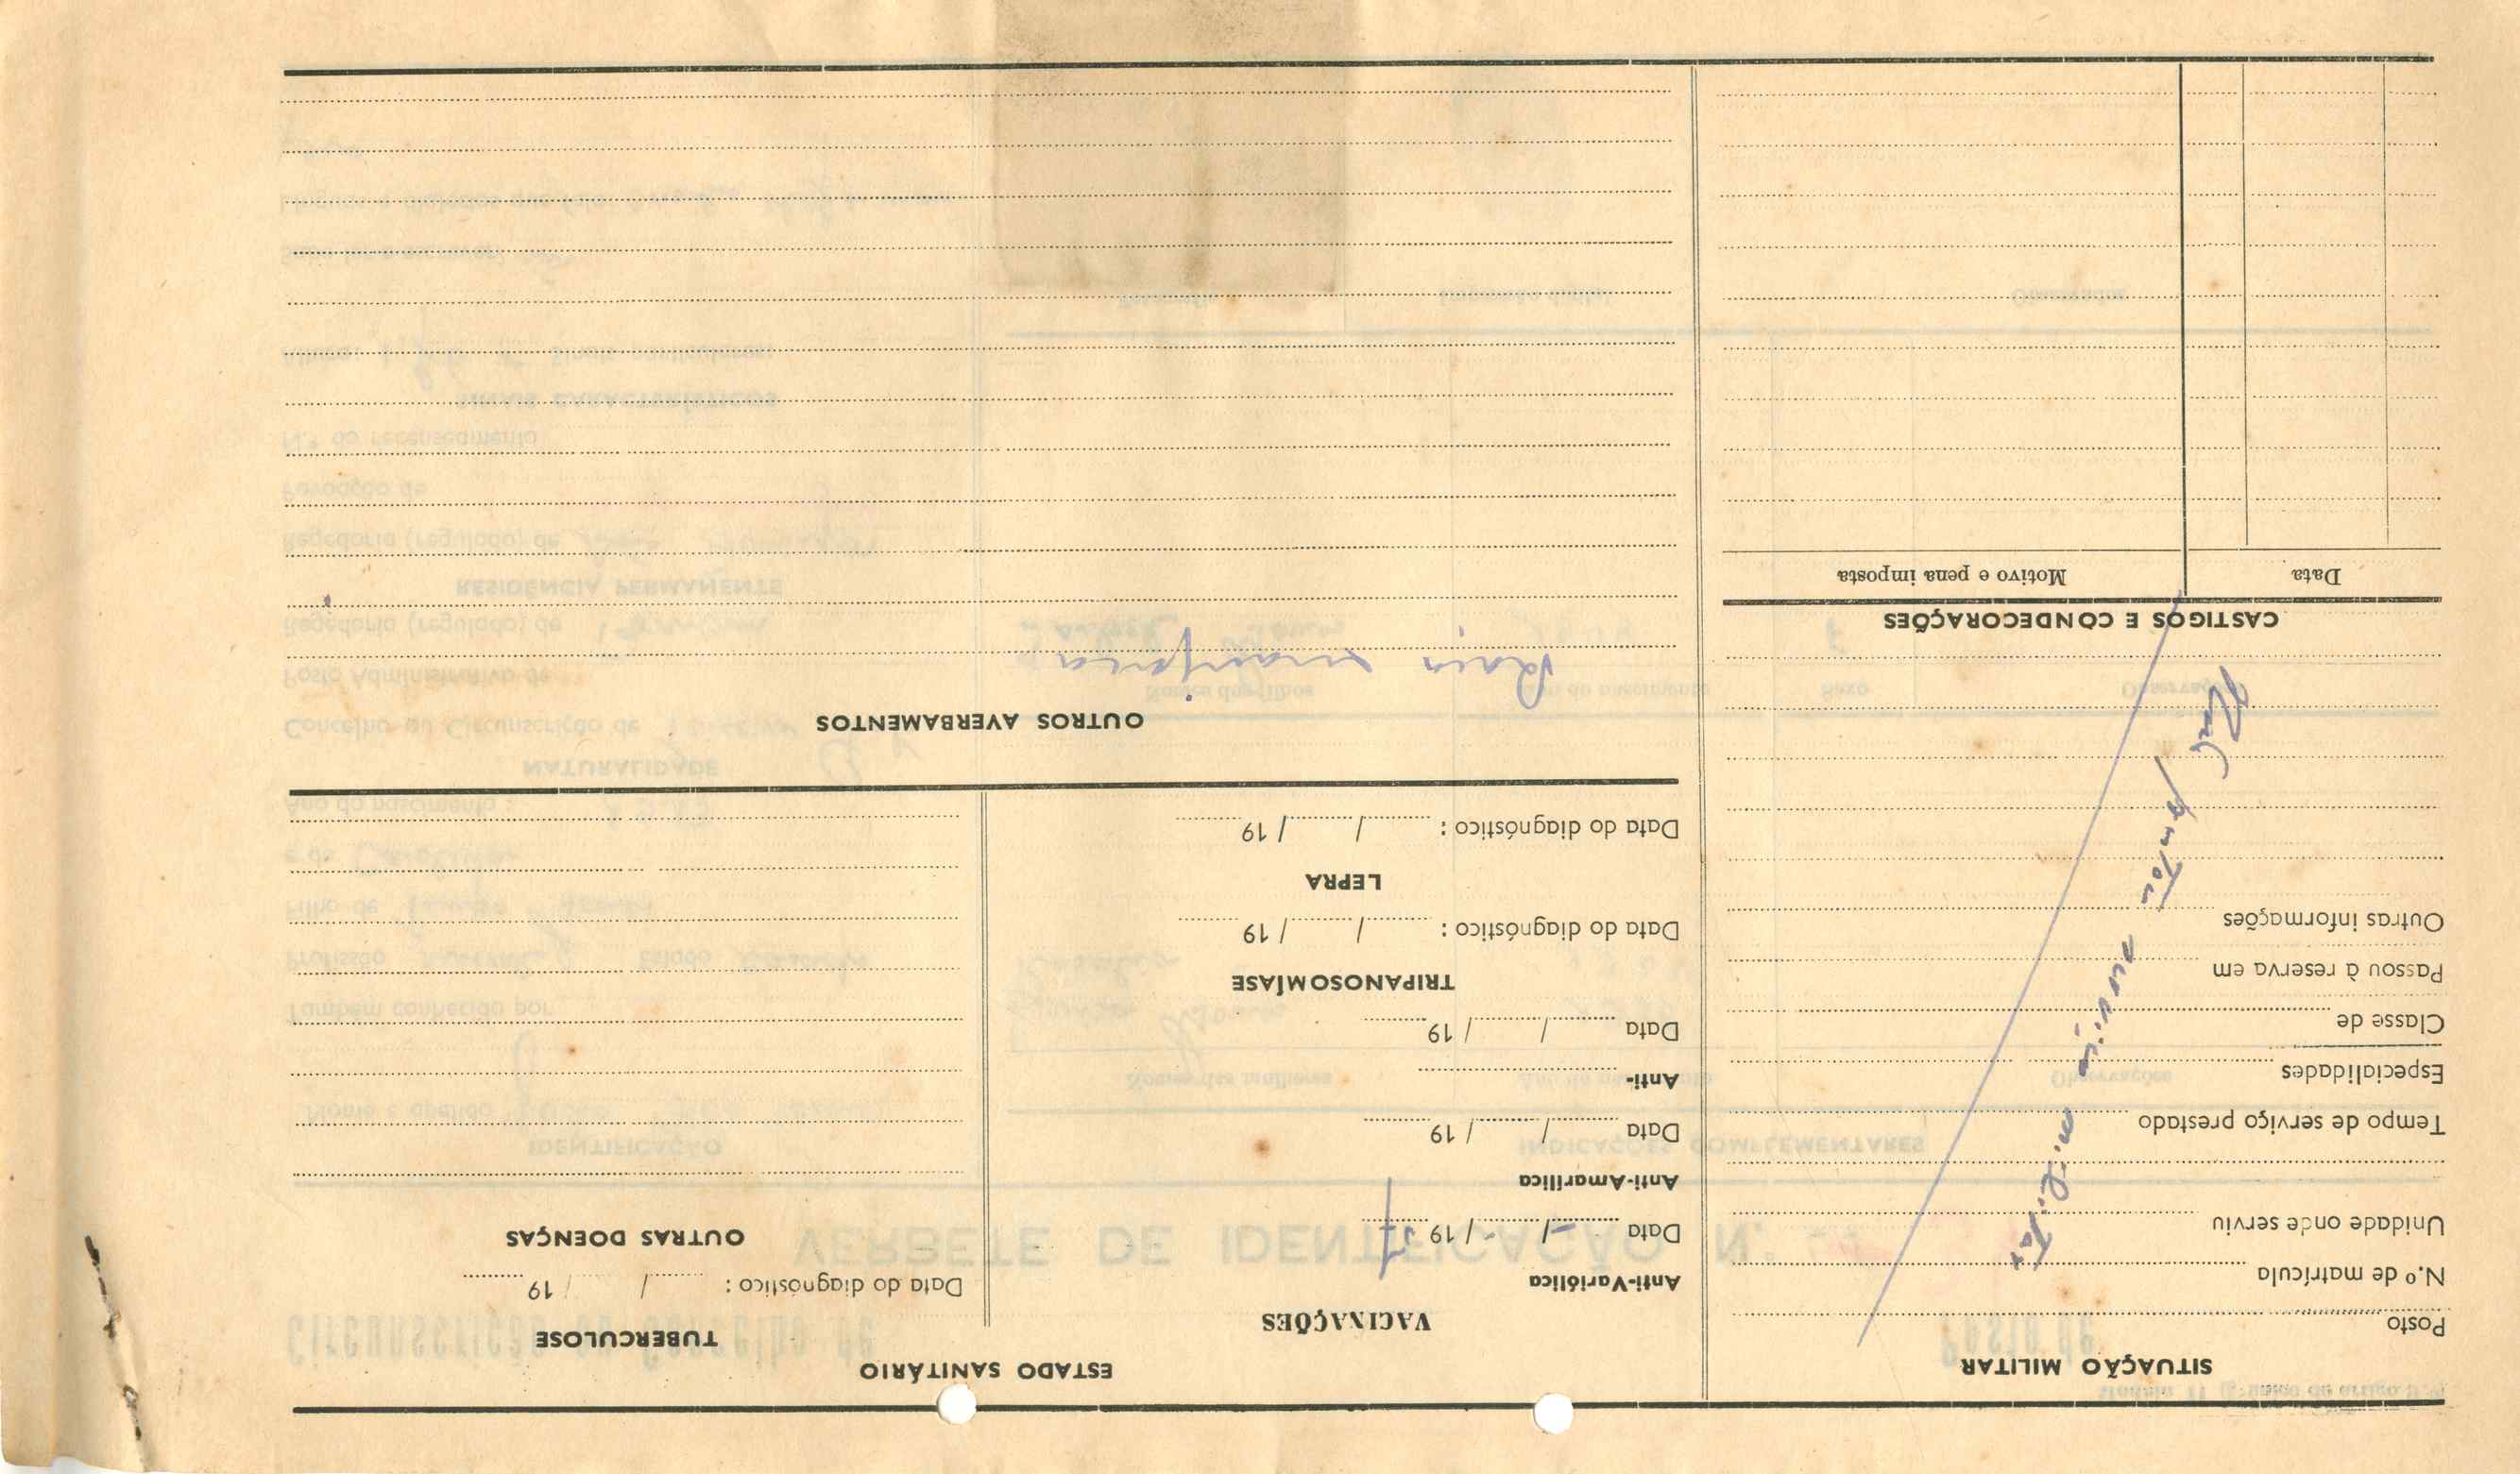 SITUAÇÃO MILITAR
Posto
N.º de matrícula
Unidade onde serviu
Tempo de serviço prestado
Especialidades
Classe de
Passou à reserva em
Outras informações
não prestou serviço militar
CASTIGOS E CONDECORAÇÕES
Data Motivo e pena imposta
ESTADO SANITÁRIO
VACINAÇÕES
Anti-Variólica
Data -/-/ 1957
Anti-Amarílica
Data / / 19
Anti-
Data / / 19
TRIPANOSOMÍASE
Data do diagnóstico: / / 19
LEPRA
Data do diagnóstico: / / 19
TUBERCULOSE
Data do diagnóstico: / / 19
OUTRAS DOENÇAS
OUTROS AVERBAMENTOS
Raça